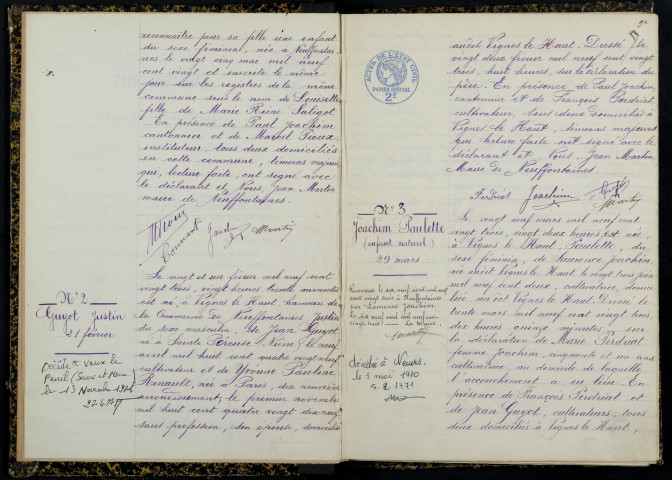 reconnaître pour sa fille une enfant
du sexe féminin, née à Neuffontai
nes le vingt cinq mai mil neuf
cent vingt et inscrite le même
jour sur les registres de la même
commune sous le nom de Lousette
fille de Marie Reine Saligot
En présence de Paul Joachim
cantonnier et de Marcel Sieux
instituteur, tous deux domiciliés
en cette commune, témoins majeurs
qui, lecture faite, ont signé avec
le déclarant et Nous, Jean Martin
maire de Neuffontaines.
Joachim
Martin
N° 2
Guyot Justin
21 février
Décédé à Vaux le
Pénil (Seine et Marne)
le 13 Novembre 1976
Le vingt et un février mil neuf cent
vingt trois, vingt heures trente minutes
est né, à Vignes le Haut, hameau de
la Commune de Neuffontaines Justin
du sexe masculin, de Jean Guyot
né à Sainte Péreuse Nièvre le neuf
avril mil huit cent quatre vingt neuf
cultivateur et de Yvonne Pauline
Renault, née à Paris, dix neuvième
arrondissement, le premier novembre
mil huit cent quatre vingt dix neuf
sans profession, son épouse, domiciliés
ACTES DE L'ETAT CIVIL
PAPIER SPECIAL
2F
audit Vignes le Haut. Dressé le
vingt deux février mil neuf cent vingt
trois, huit heures, sur la déclaration du
père. En présence de Paul Joachim
cantonnier et de François Perdriat,
cultivateur, tous deux domiciliés à
Vignes le Haut, témoins majeurs
qui lecture faite ont signé avec le
déclarant et Nous, Jean Martin,
Maire de Neuffontaines.
Perdriat Joachim
Martin
N° 3
Joachim Paulette
(enfant naturel)
29 mars
Reconnue le six avril mil neuf
cent vingt trois à Neuffontaines
par Laurence Joachim
Le six avril mil neuf cent
vingt trois Le Maire,
Martin
décédée à Nevers
le 3 mai 1970
Le vingt neuf mars mil neuf cent
vingt trois, vingt deux heures est née,
à Vignes le Haut, Paulette, du
sexe féminin, de Laurence Joachim,
née audit Vignes le Haut le vingt trois
mil neuf cent deux, cultivatrice, domici
liée audit Vignes le Haut. Dressé le
trente mars mil neuf cent vingt trois,
dix heures quinze minutes, sur
la déclaration de Marie Perdriat
femme Joachim, cinquante et un ans
cultivatrice, au domicile de laquelle
l'accouchement a eu lieu. En
présence de François Perdriat et
de Jean Guyot, cultivateurs, tous
deux domiciliés à Vignes le Haut,